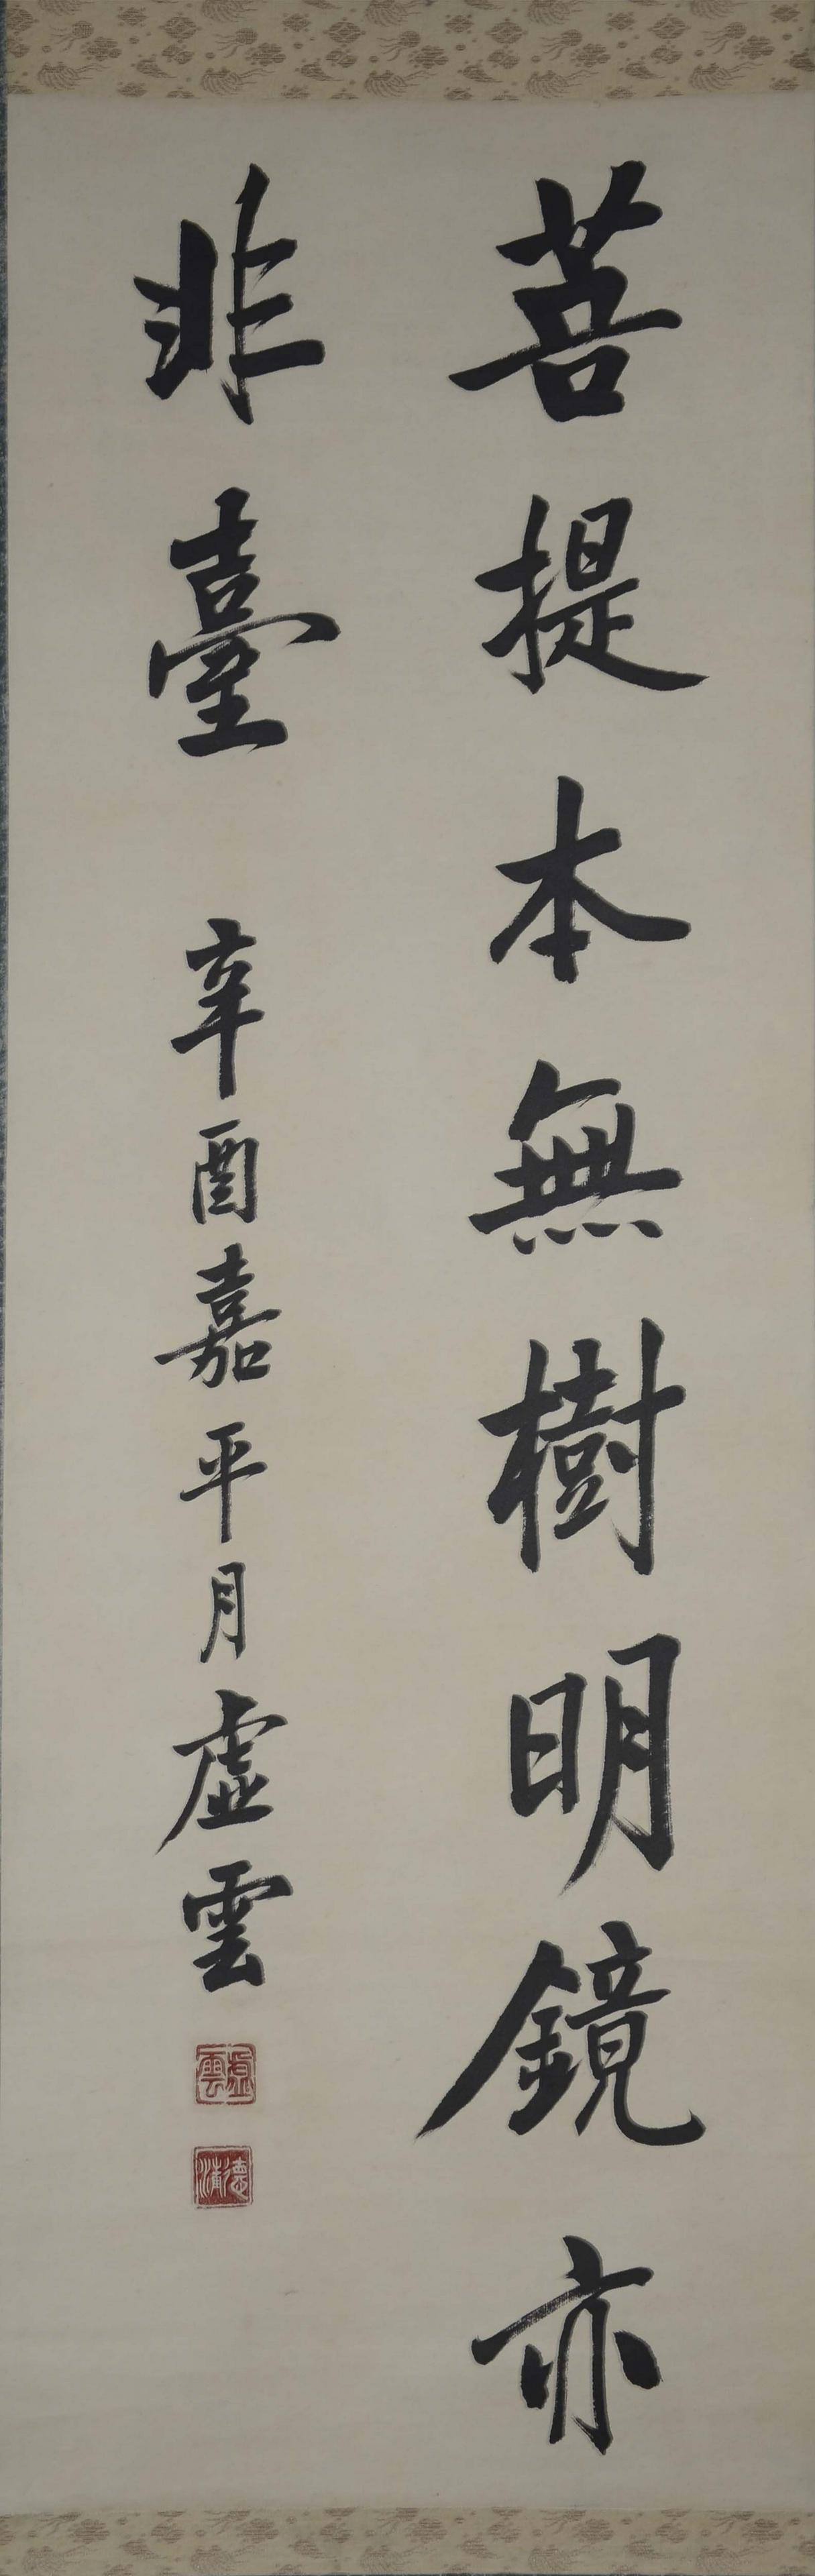 菩提本無樹明鏡亦
非臺 辛酉嘉平月虛雲
虛雲
德清